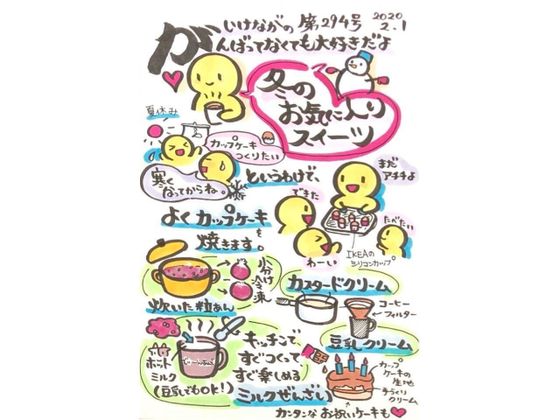 いけながの 第294号 2020 2.1
がんばってなくても大好きだよ
冬の
お気に入り
スイーツ
夏休み
カップケーキ
つくりたい
寒く
なってからね
というわけで、
よくカップケーキを
焼きます。
まだ
アチチよ
できた
たべたい
わーい
IKEAの
シリコンカップ。
炊いた粒あん
小分け
冷凍
カスタードクリーム
コーヒー
フィルター
豆乳クリーム
ホット
ミルク
(豆乳でもOK!)
キッチンで
すぐつくって
すぐ楽しめる
ミルクぜんざい
カップ
ケーキの
生地
手づくり
クリーム
カンタンなお祝いケーキも